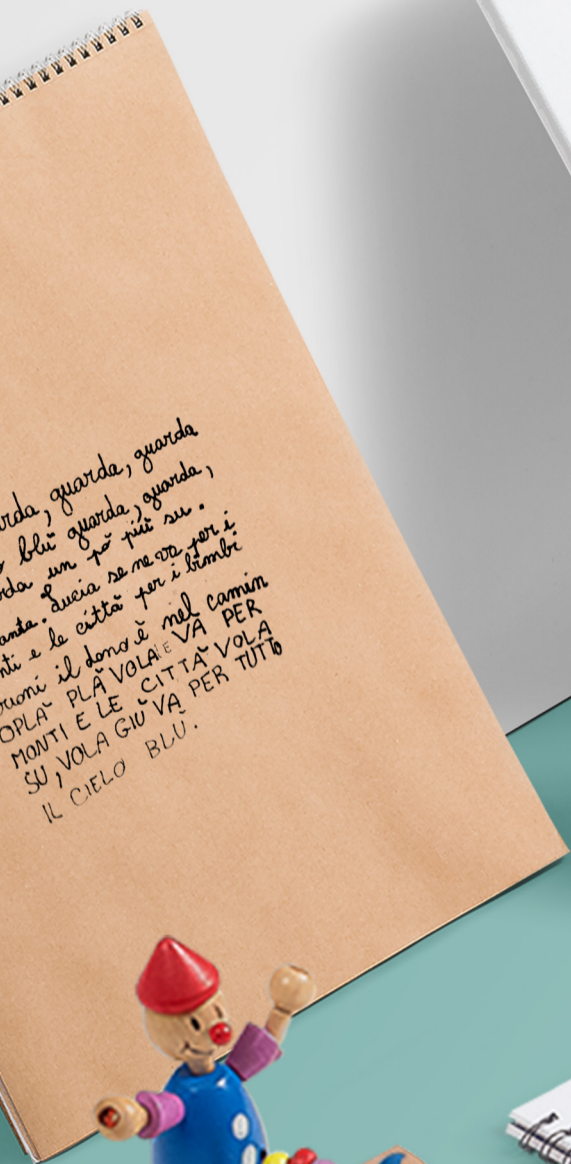 guarda, guarda
blŭ guarda, guarda,
un pŏ piŭ su.
Lucia se ne va per i
e le cittă per i bimbi
il dono ĕ nel camin
OPLĂ PLĂ VOLA E VĂ PER
MONTI E LE CITTĂ VOLA
SU, VOLA GIŬ VĂ PER TUTTO
IL CIELO BLŬ.